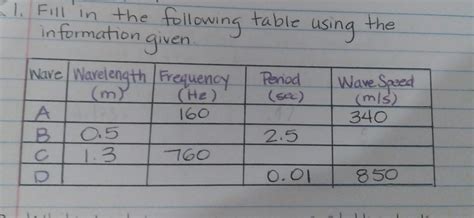 1. Fill in the following table using the
information given.
Wave Wavelength (m) Frequency (Hz) Period (sec) Wave Speed (m/s)
A 160 340
B 0.5 2.5
C 1.3 760
D 0.01 850